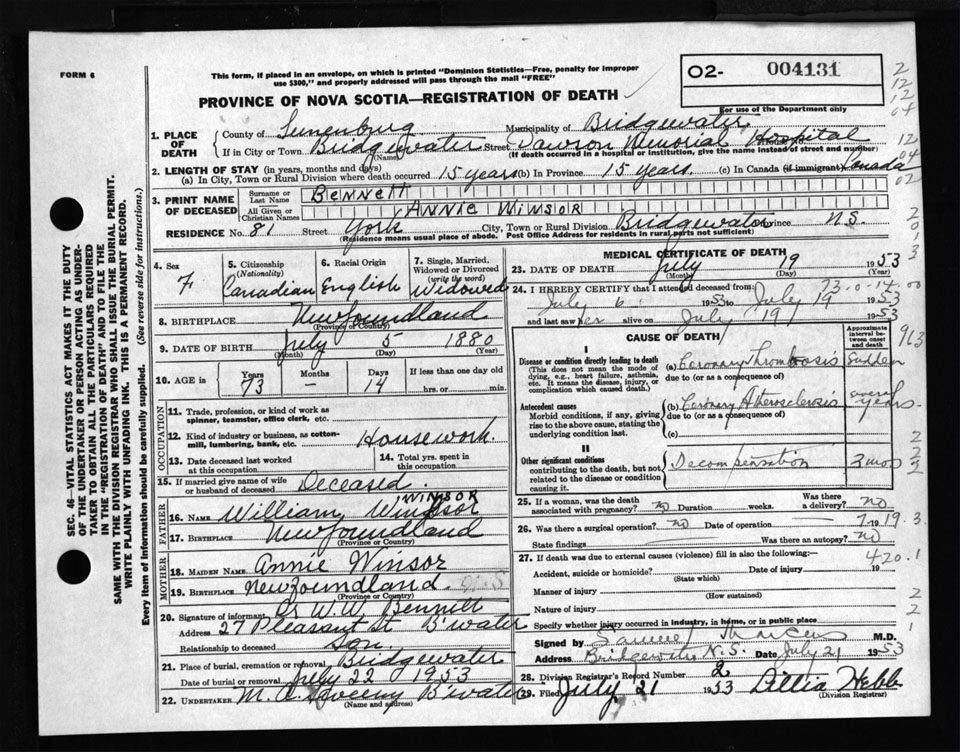 FORM 6
This form, if placed in an envelope, on which is printed "Dominion Statistics—Free, penalty for improper
use $300," and properly addressed will pass through the mail "FREE"
PROVINCE OF NOVA SCOTIA—REGISTRATION OF DEATH
O2- 004131
For use of the Department only
1. PLACE OF DEATH
County of Lunenburg Municipality of Bridgewater
If in City or Town Bridgewater Street Dawson Memorial Hospital
(Name) (If death occurred in a hospital or institution, give the name instead of street and number)
2. LENGTH OF STAY (in years, months and days)
(a) In City, Town or Rural Division where death occurred 15 years (b) In Province 15 years. (c) In Canada (if immigrant) Canada
3. PRINT NAME OF DECEASED
Surname or Last Name Bennett
All Given or Christian Names ANNIE WINSOR
RESIDENCE No. 81 Street York City, Town or Rural Division Bridgewater Province N.S.
(Residence means usual place of abode. Post Office Address for residents in rural parts not sufficient)
4. Sex F
5. Citizenship (Nationality) Canadian
6. Racial Origin English
7. Single, Married, Widowed or Divorced (write the word) Widowed
8. BIRTHPLACE Newfoundland
(Province or Country)
9. DATE OF BIRTH July 5 1880
(Month) (Day) (Year)
10. AGE in Years 73 Months — Days 14 If less than one day old hrs. or min.
OCCUPATION
11. Trade, profession, or kind of work as spinner, teamster, office clerk, etc.
12. Kind of industry or business, as cotton-mill, lumbering, bank, etc. Housework.
13. Date deceased last worked at this occupation
14. Total yrs. spent in this occupation
15. If married give name of wife or husband of deceased Deceased.
FATHER
WINSOR
16. NAME William Windsor
17. BIRTHPLACE Newfoundland
(Province or Country)
MOTHER
18. MAIDEN NAME Annie Winsor
19. BIRTHPLACE Newfoundland
(Province or Country)
20. Signature of informant Dr W.W. Bennett
Address 27 Pleasant St B'water
Relationship to deceased Son
21. Place of burial, cremation or removal Bridgewater
Date of burial or removal July 22 1953
22. UNDERTAKER B'water
(Name and address)
MEDICAL CERTIFICATE OF DEATH
23. DATE OF DEATH July 19 1953
(Month) (Day) (Year)
24. I HEREBY CERTIFY that I attended deceased from:
July 6 1953 to July 19 1953
and last saw her alive on July 19 1953
CAUSE OF DEATH
Approximate interval between onset and death
I
Disease or condition directly leading to death
(This does not mean the mode of dying, e.g., heart failure, asthenia, etc. It means the disease, injury, or complication which caused death.)
(a) Coronary Thrombosis Sudden
due to (or as a consequence of)
Antecedent causes
Morbid conditions, if any, giving rise to the above cause, stating the underlying condition last.
(b) Coronary Atherosclerosis several years.
due to (or as a consequence of)
(c)
II
Other significant conditions
contributing to the death, but not related to the disease or condition causing it.
Decompensation 2 mos
25. If a woman, was the death associated with pregnancy? no Duration weeks. Was there a delivery? no
26. Was there a surgical operation? no Date of operation 19
State findings Was there an autopsy? no
27. If death was due to external causes (violence) fill in also the following:
Accident, suicide or homicide? Date of injury 19
(State which)
Manner of injury
(How sustained)
Nature of injury
Specify whether injury occurred in industry, in home, or in public place
Signed by M.D.
Address Bridgewater N.S. Date July 21 1953
28. Division Registrar's Record Number 2
29. Filed July 21 1953 Lillia Webb
(Division Registrar)
420.1
963
SEC. 46—VITAL STATISTICS ACT MAKES IT THE DUTY
OF THE UNDERTAKER OR PERSON ACTING AS UNDER-
TAKER TO OBTAIN ALL THE PARTICULARS REQUIRED
IN THE "REGISTRATION OF DEATH" AND TO FILE THE
SAME WITH THE DIVISION REGISTRAR WHO SHALL ISSUE THE BURIAL PERMIT.
WRITE PLAINLY WITH UNFADING INK. THIS IS A PERMANENT RECORD.
Every item of information should be carefully supplied. (See reverse side for instructions.)